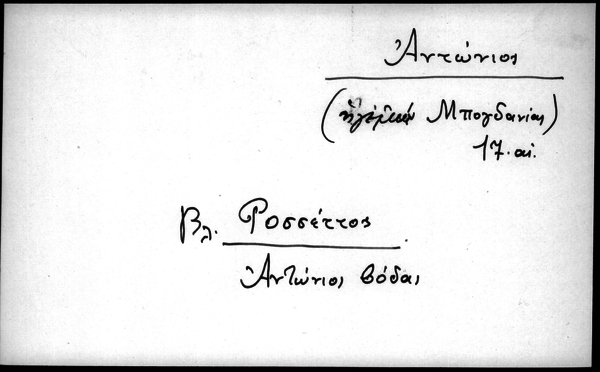 Ἀντώνιος
(ἡγεμὼν Μπογδανίας)
17. αἰ.
Βλ. Ροσσέττος
Ἀντώνιος βόδας